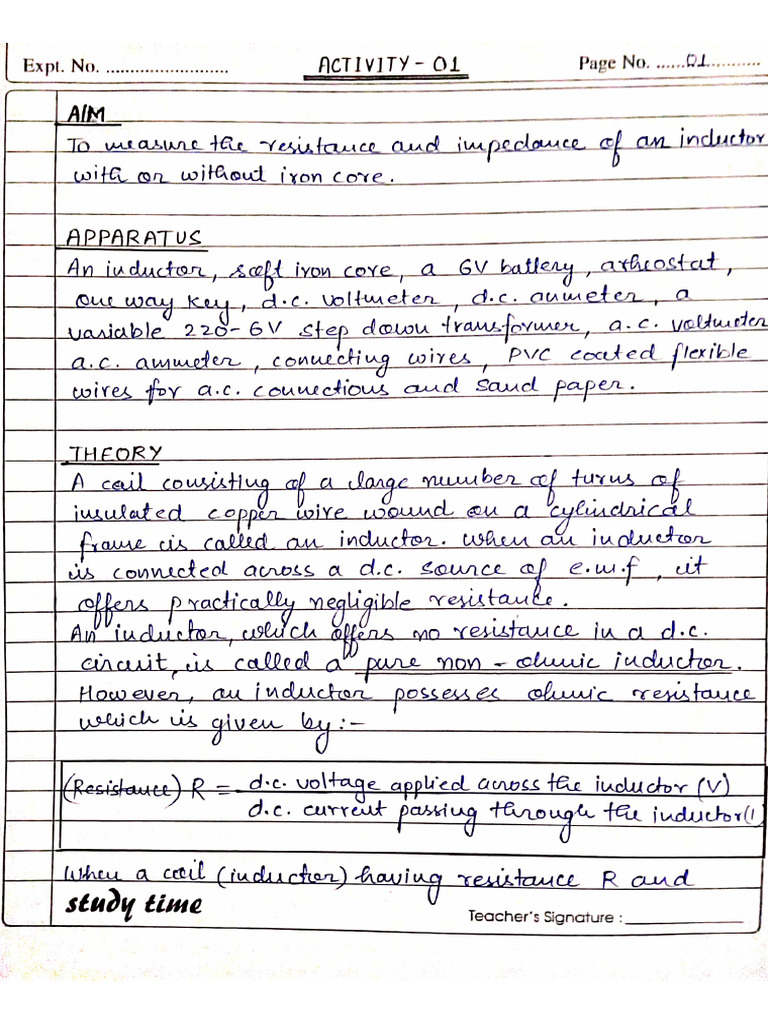 Expt. No. ......................... ACTIVITY - 01 Page No. ......01...........
AIM
To measure the resistance and impedance of an inductor
with or without iron core.
APPARATUS
An inductor, soft iron core, a 6V battery, a rheostat,
one way key, d.c. voltmeter, d.c. ammeter, a
variable 220-6V step down transformer, a.c. voltmeter
a.c. ammeter, connecting wires, PVC coated flexible
wires for a.c. connections and sand paper.
THEORY
A coil consisting of a large number of turns of
insulated copper wire wound on a cylindrical
frame is called an inductor. When an inductor
is connected across a d.c. source of e.m.f, it
offers practically negligible resistance.
An inductor, which offers no resistance in a d.c.
circuit, is called a pure non-ohmic inductor.
However, an inductor possesses ohmic resistance
which is given by:-
(Resistance) R = d.c. voltage applied across the inductor (V)
d.c. current passing through the inductor (I
When a coil (inductor) having resistance R and
study time
Teacher's Signature : ________________